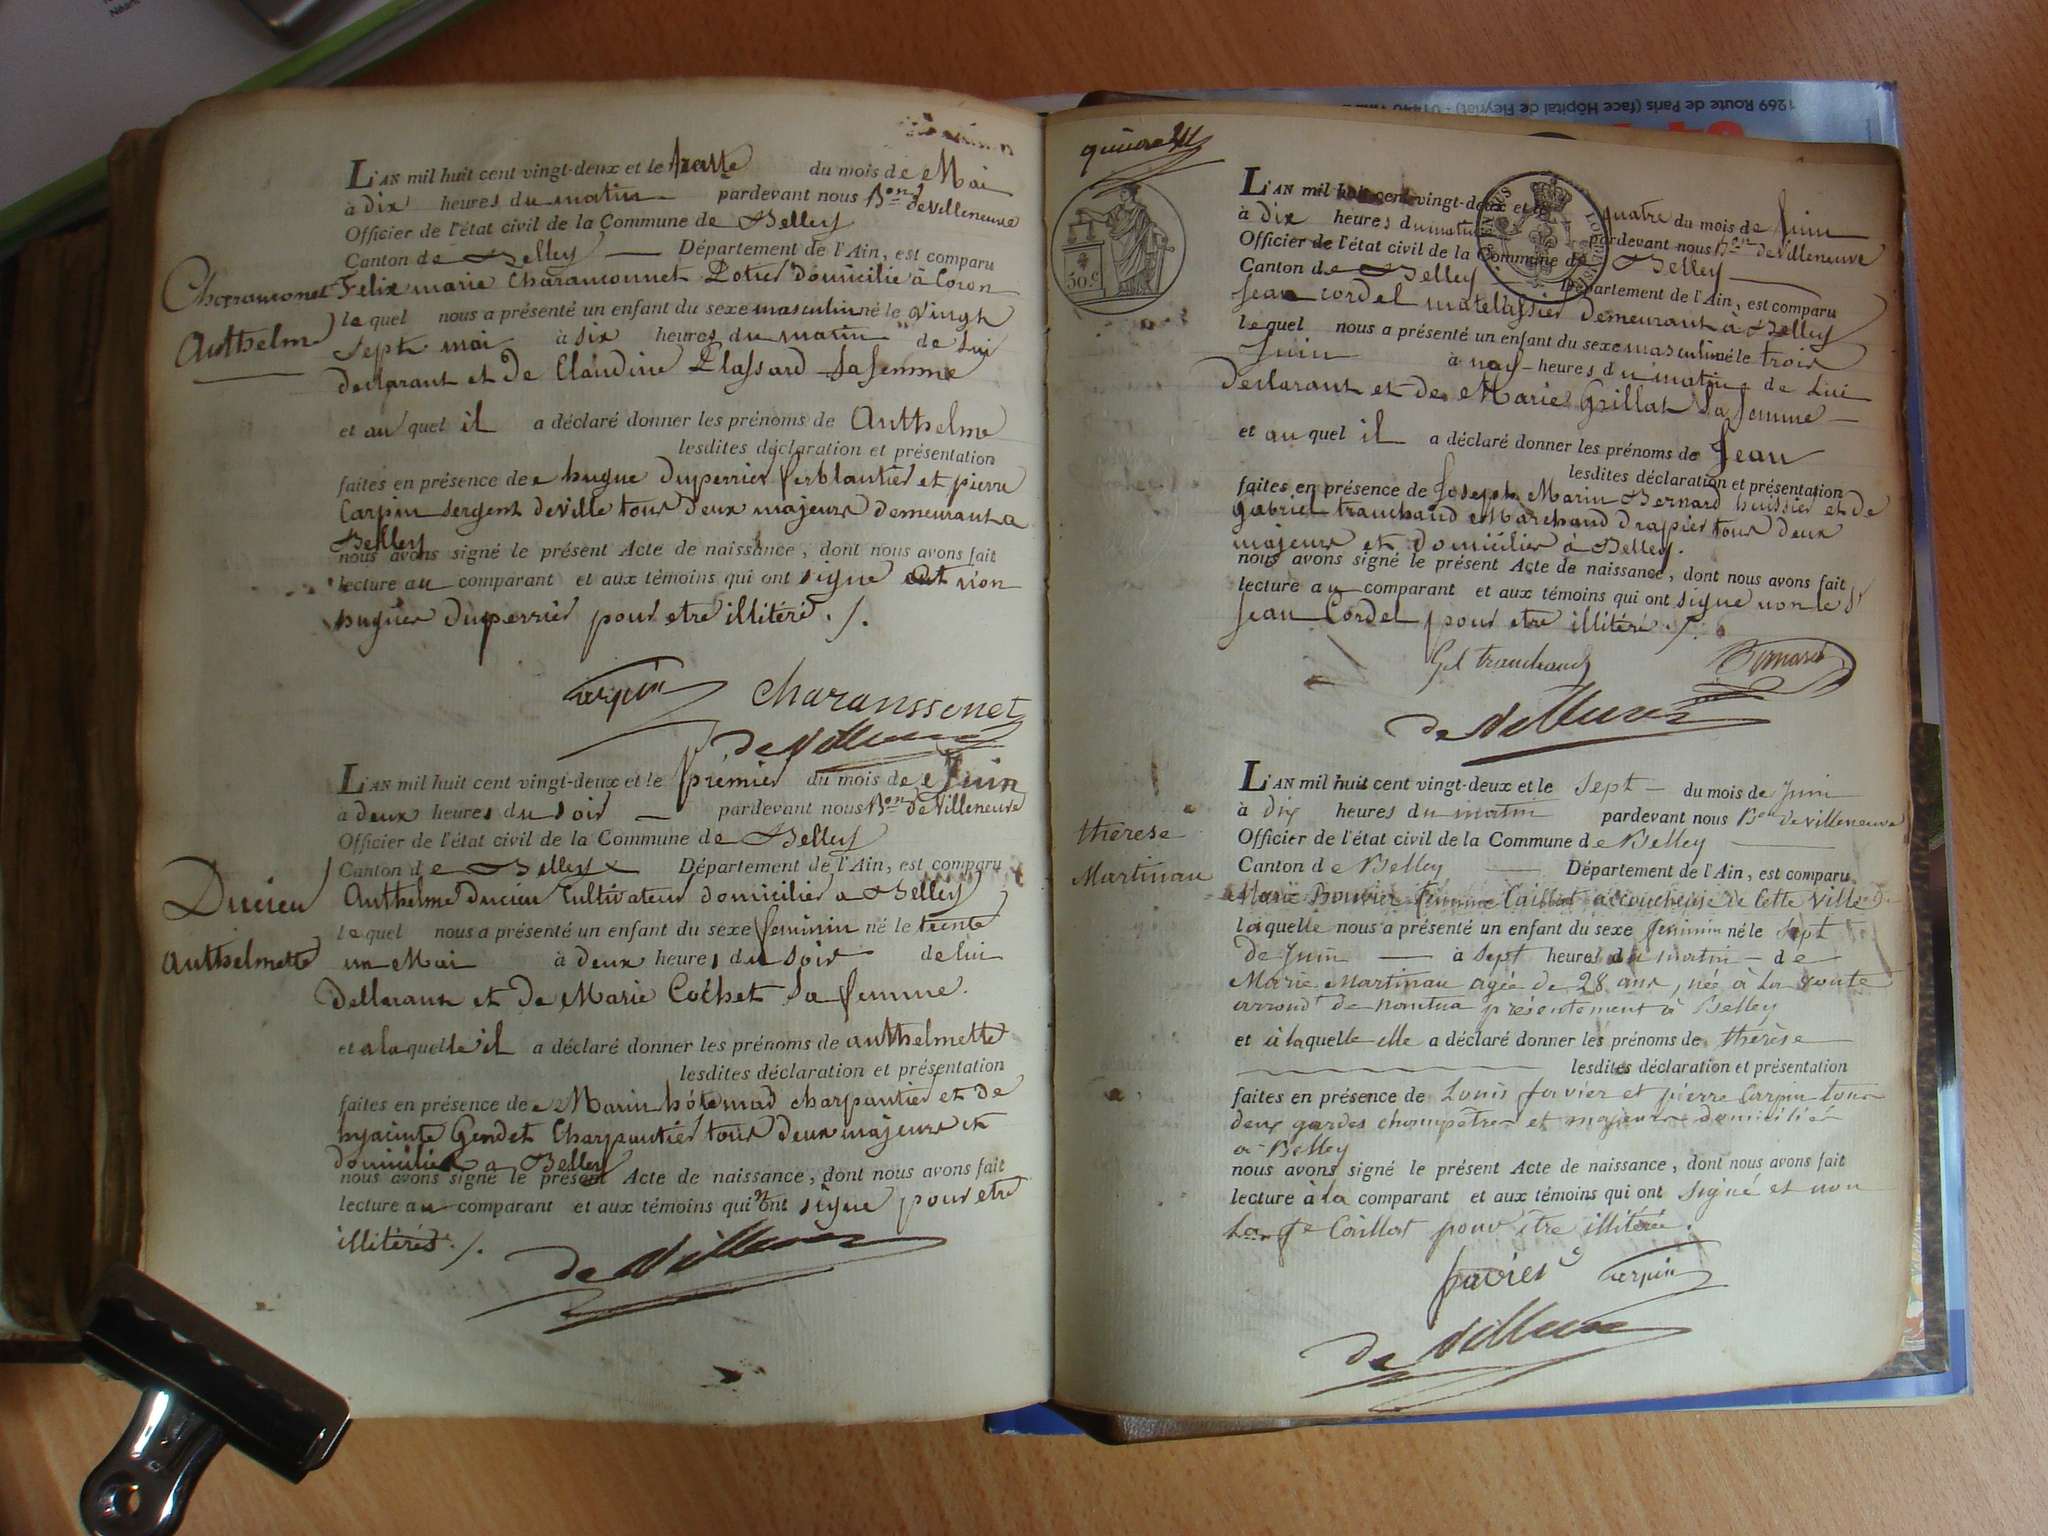 L'AN mil huit cent vingt-deux et le trente du mois de Mai
à dix heures du matin pardevant nous Bon deVilleneuve
Officier de l'état civil de la Commune de Belley
Canton de Belley Département de l'Ain, est comparu
Felix marie Charamonnet Potier Domicilié à Coron
lequel nous a présenté un enfant du sexe masculin né le vingt
Sept mai à six heures du matin de Lui
declarant et de Claudine Plassard Sa femme
et auquel il a déclaré donner les prénoms de Anthelme
lesdites déclaration et présentation
faites en présence de hugue Duperrier ferblantier et pierre
Carpin Sergent deVille tous deux majeurs Demeurant a
Belley
nous avons signé le présent Acte de naissance, dont nous avons fait
lecture au comparant et aux témoins qui ont signé et non
hugues Duperrier pour etre illitéré ./.
Charamonet
Anthelm
Carpin Charanssonet
de Villeneuve
L'AN mil huit cent vingt-deux et le prémier du mois de Juin
à deux heures du soir pardevant nous Bon deVilleneuve
Officier de l'état civil de la Commune de Belley
Canton de Belley Département de l'Ain, est comparu
Anthelme Ducieu Cultivateur domicilier a Belley
lequel nous a présenté un enfant du sexe feminin né le trente
un Mai à deux heures du soir de lui
Dellarant et de Marie Cochet Sa femme.
et alaquelle il a déclaré donner les prénoms de anthelmette
lesdites déclaration et présentation
faites en présence de Marin charpantier et de
hyacinte Gendet Charpantier tous deux majeurs et
domicilier a Belley
nous avons signé le présent Acte de naissance, dont nous avons fait
lecture au comparant et aux témoins qui n'ont signe pour etre
illitérés ./.
Ducieu
Anthelmette
de Villeneuve
quinze
50 c
L'AN mil huit cent vingt-deux et le quatre du mois de Juin
à dix heures du matin pardevant nous Bon deVilleneuve
Officier de l'état civil de la Commune de Belley
Canton de Belley Département de l'Ain, est comparu
Jean Cordel matelassier Demeurant à Belley
lequel nous a présenté un enfant du sexe masculin né le trois
Juin à neuf heures du matin de Lui
declarant et de Marie Grillat Sa femme
et auquel il a déclaré donner les prénoms de Jean
lesdites déclaration et présentation
faites en présence de Joseph Marin Bernard huissier et de
gabriel tranchand Marchand Drapier tous deux
majeurs et domicilier à Belley.
nous avons signé le présent Acte de naissance, dont nous avons fait
lecture au comparant et aux témoins qui ont signe non le S
Jean Cordel pour etre illitéré ./.
Gel tranchand Bernard
de Villeneuve
L'AN mil huit cent vingt-deux et le Sept du mois de Juin
à dix heures du matin pardevant nous Bon deVilleneuve
Officier de l'état civil de la Commune de Belley
Canton de Belley Département de l'Ain, est comparu
Marie Bouvier femme Caillot accoucheuse de Cette Ville
laquelle nous a présenté un enfant du sexe feminin né le Sept
De Juin à Sept heures du matin de
Marie Martinau agée de 28 ans, née à La
arrondt de nantua présentement à Belley
et à laquelle elle a déclaré donner les prénoms de thérèse
lesdites déclaration et présentation
faites en présence de Louis favier et pierre Carpin tous
deux gardes champêtres et majeurs domiciliés
à Belley
nous avons signé le présent Acte de naissance, dont nous avons fait
lecture à la comparant et aux témoins qui ont signé et non
La fe Caillot pour être illitérée.
thérèse
Martinau
favier Carpin
de Villeneuve
1269 Route de Paris (face Hôpital de Fleyriat)